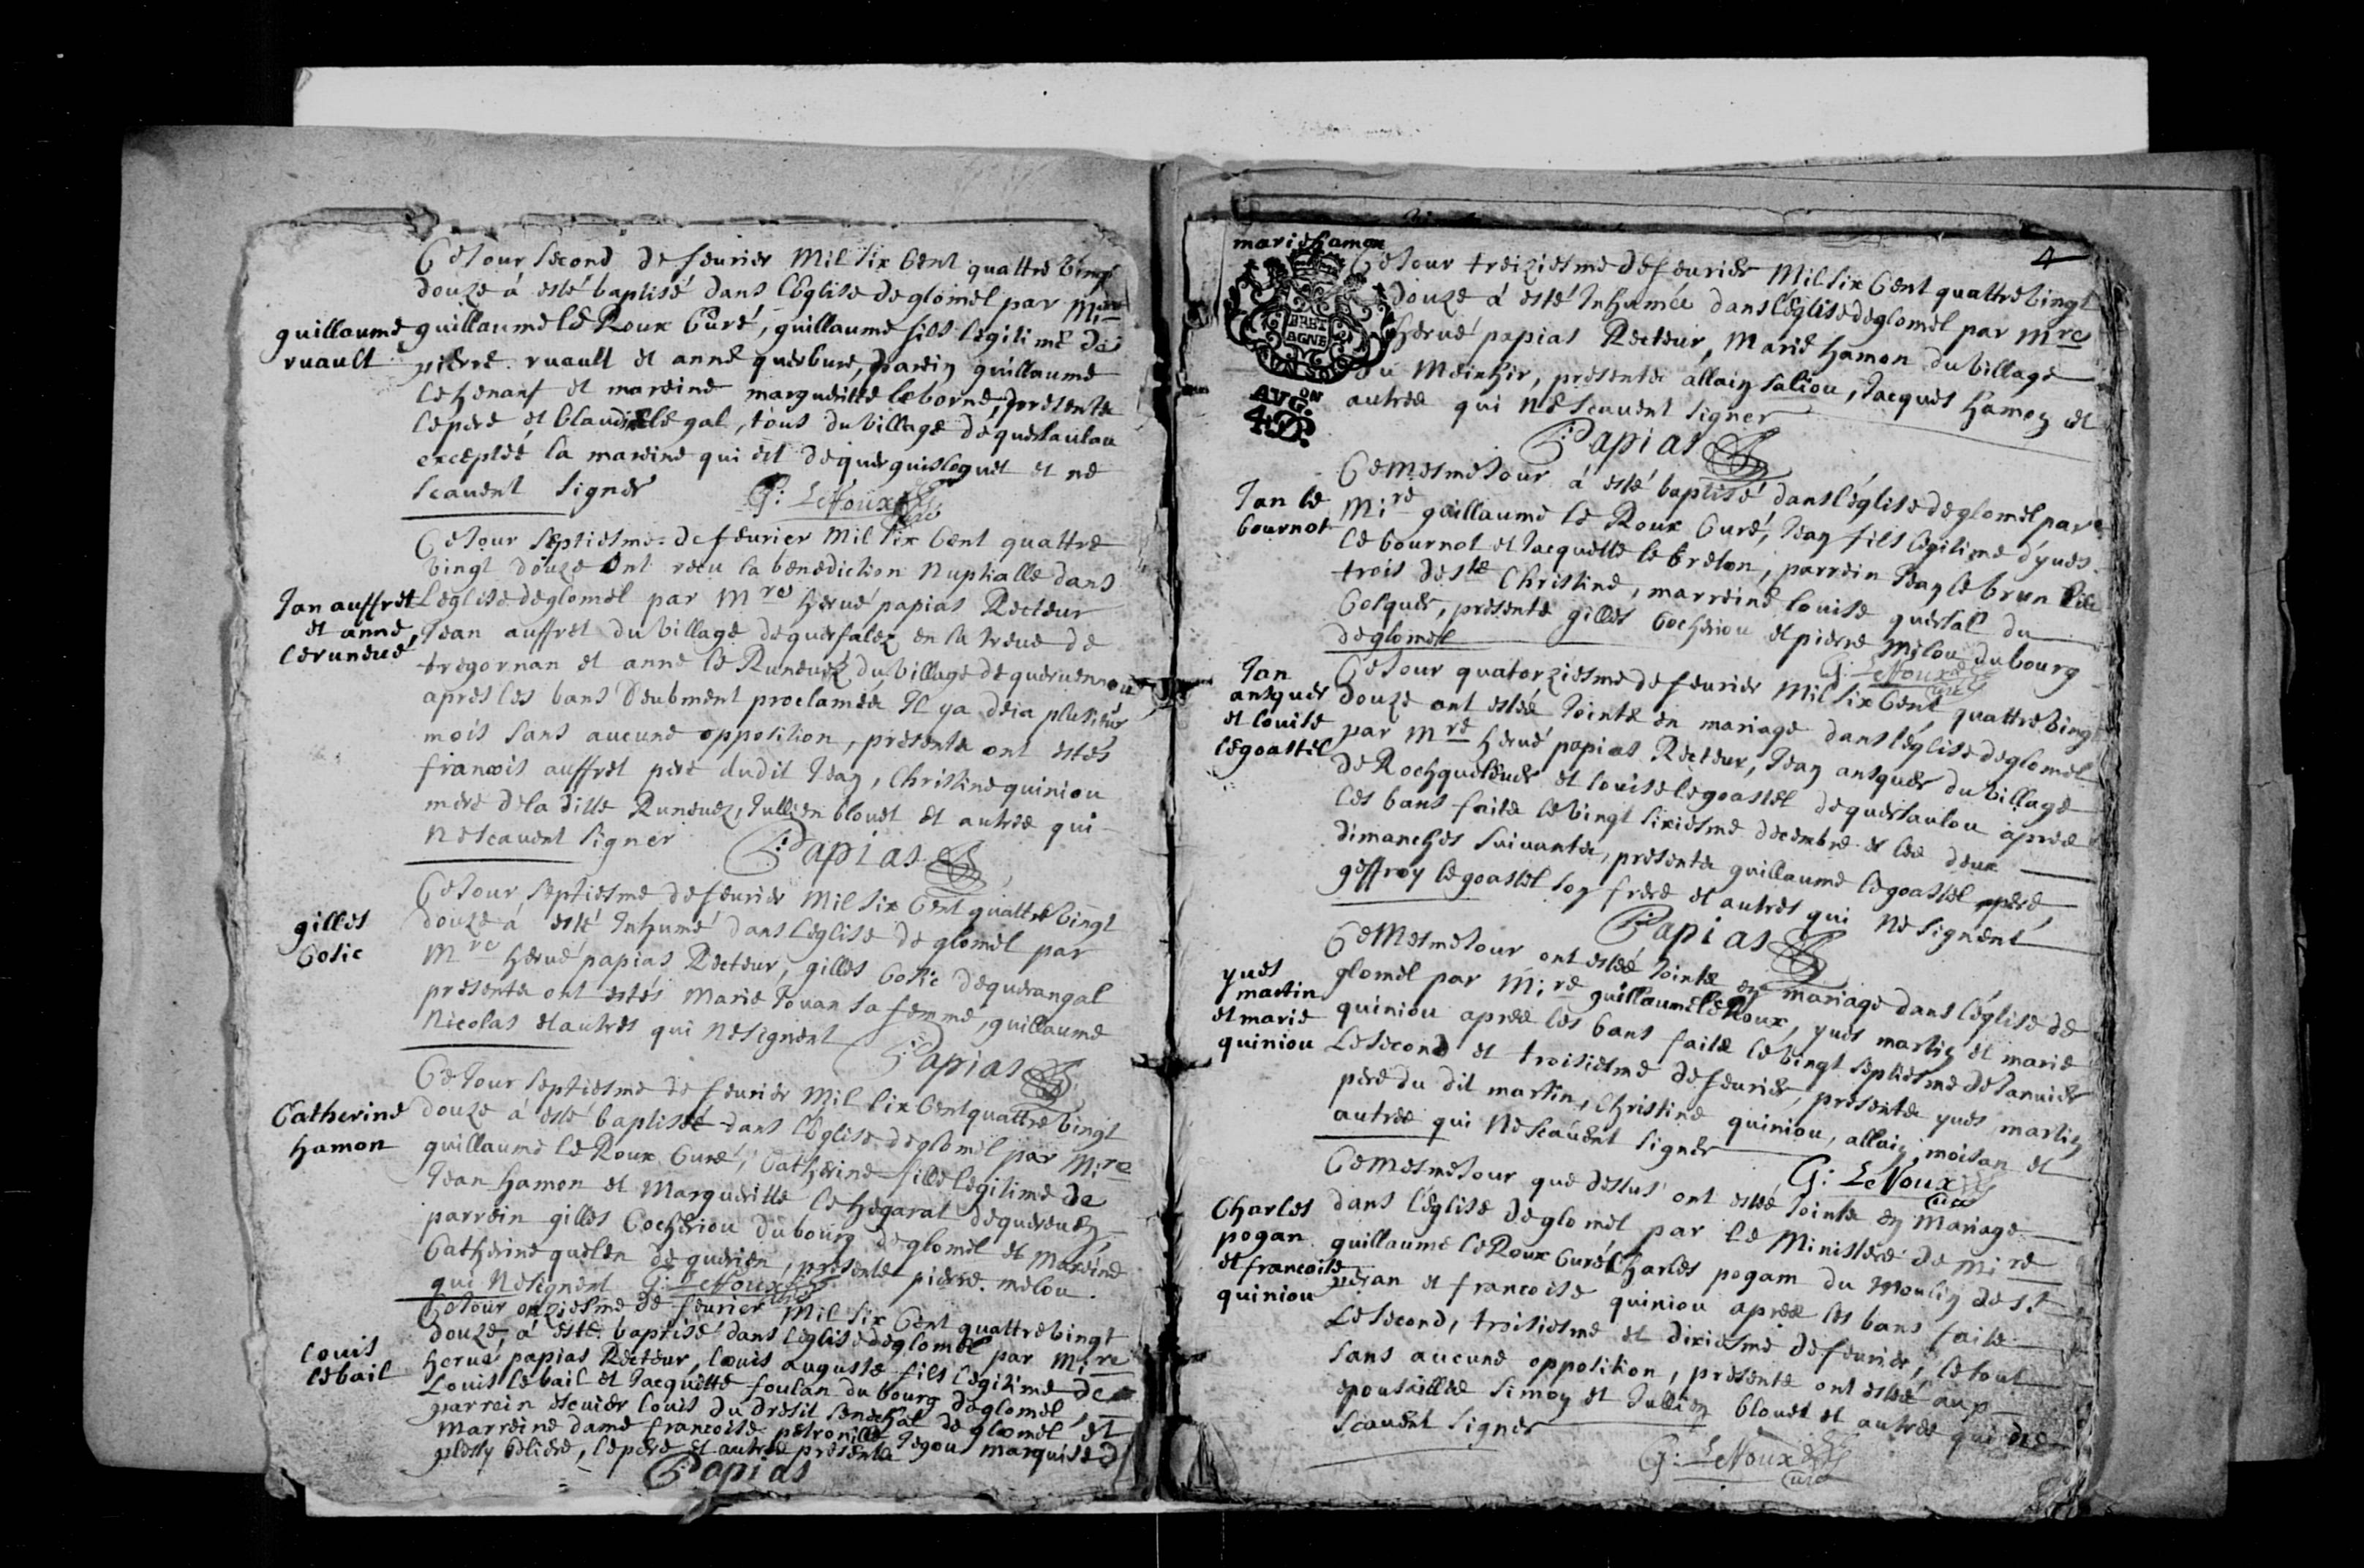 Ce Jour second de feurier Mil six Cent quattre bingt
douze á esté baptisé dans l'Eglise de glomel par Mire
guillaume
guillaume le Roux Curé, guillaume fils legitime de
ruault
pierre ruault et anne querbure, parein guillaume
le henanf et mareine margueritte le borne, presente
le pere et Claude le gal, tous du billage de quersaulau
exceptéé la mareine qui est de querguisloguet et ne
scauent signer G: LeRoux Curé
Ce Jour septiesme de feurier Mil six Cent quattre
bingt douze ont recu la benediction Nuptialle dans
Jan auffret
L'eglise de glomel par Mre herué papias Recteur
et anne
Jean auffret du billage de querfalez en la treue de
le runeué
tregornan et anne le Runeuéz du billage de queruennou
apres les bans Deubment proclamée Il ya deia plusieur
mois sans aucune opposition, presente ont estés
francois auffret pere dudit Jean, Christine quiniou
mere de la ditte Runeuez, Jullien blouet et autree qui
Ne scauent signer Papias
Ce Jour septiesme de feurier Mil six Cent quattre bingt
gilles
douze á esté Inhumé dans l'eglise de glomel par
Cosic
Mre herué papias Recteur, gilles Cosic de querangal
presente ont estés Marie Jouan sa femme, guillaume
Nicolas et autres qui ne signent Papias
Ce Jour septiesme de feurier Mil six Cent quattre bingt
Catherine
douze á esté baptiséé dans l'Eglise de glomel par Mire
hamon
guillaume le Roux Curé, Catherine fille legitime de
Jean hamon et Margueritte le hegarat de quereuen,
parrein gilles Cocheriou du bourg de glomel et Mareine
Catherine quelen de querien, presente pierre melou
qui Ne signent G: LeRoux Curé
Ce Jour onziesme de feurier Mil six Cent quattre bingt
douze, á esté baptisé dans l'eglise de glomel par Mire
louis
herué papias Recteur, louis auguste fils legitime de
le bail
Louis le bail et Jacquette foulan du bourg de glomel,
parrein escuier louis du dresit senechal de glomel et
Marreine dame francoise petronille Jegou marquise d
plessy beliere, le pere et autree presente
Papias
4
marie hamon
BRET AGNE
ON
AVG.
4D.
Ce Jour treiziesme de feurier Mil six Cent quattre bingt
douze á esté Inhumée dans l'eglise de glomel par Mre
herué papias Recteur, Marie hamon du billage
du Meinhir, presente allain saliou, Jacques hamon et
autree qui Ne scauent signer
Papias
Ce Mesme Jour á esté baptisé dans l'église de glomel par
Jan le
Mire guillaume le Roux Curé, Jean fils legitime d'yues
bournot
le bournot et Jacquette le breton, parrein Jean le brun
trois de ste Christine, marreine louise quersal du
Cosquer, presente gilles Cocheriou et pierre Milou du bourg
de glomel G: LeRoux Curé
Jan
Ce Jour quatorziesme de feurier Mil six Cent quattre bingt
ansquer
douze ont estéé Jointe en mariage dans l'église de glomel
et louise
par Mre herué papias Recteur, Jean ansquer du billage
le goastel
de Rochqueleuer et louise le goastel de quersaulou apree
les bans faite le bingt sixiesme decembre et lee deux
dimanches suivante, presente guillaume le goastel pere,
geffroy le goastel son frere et autres qui Ne signent
Papias
Ce Mesme Jour ont estéé Jointe en mariage dans l'église de
yues
glomel par Mire guillaume le Roux, yues martin et marie
martin
quiniou apree les bans faite le bingt septiesme de Januier
et marie
Le second et troisiesme de feurier, presente yues martin
quiniou
pere du dit martin, Christine quiniou, allain moisan et
autree qui Ne scauent signer
G: LeRoux Curé
Ce Mesme Jour que dessus ont estéé Jointe en Mariage
Charles
dans l'eglise de glomel par le Ministere de Mire
pogan
guillaume le Roux Curé Charles pogam du Moulin de st
et francoise
peran et francoise quiniou apree les bans faite
quiniou
Le second, troisiesme et dixiesme de feurier, le tout
sans aucune opposition, presente ont estéé aux
epousaillee simon et Jullien blouet et autree qui Ne
scauent signer
G: LeRoux Curé